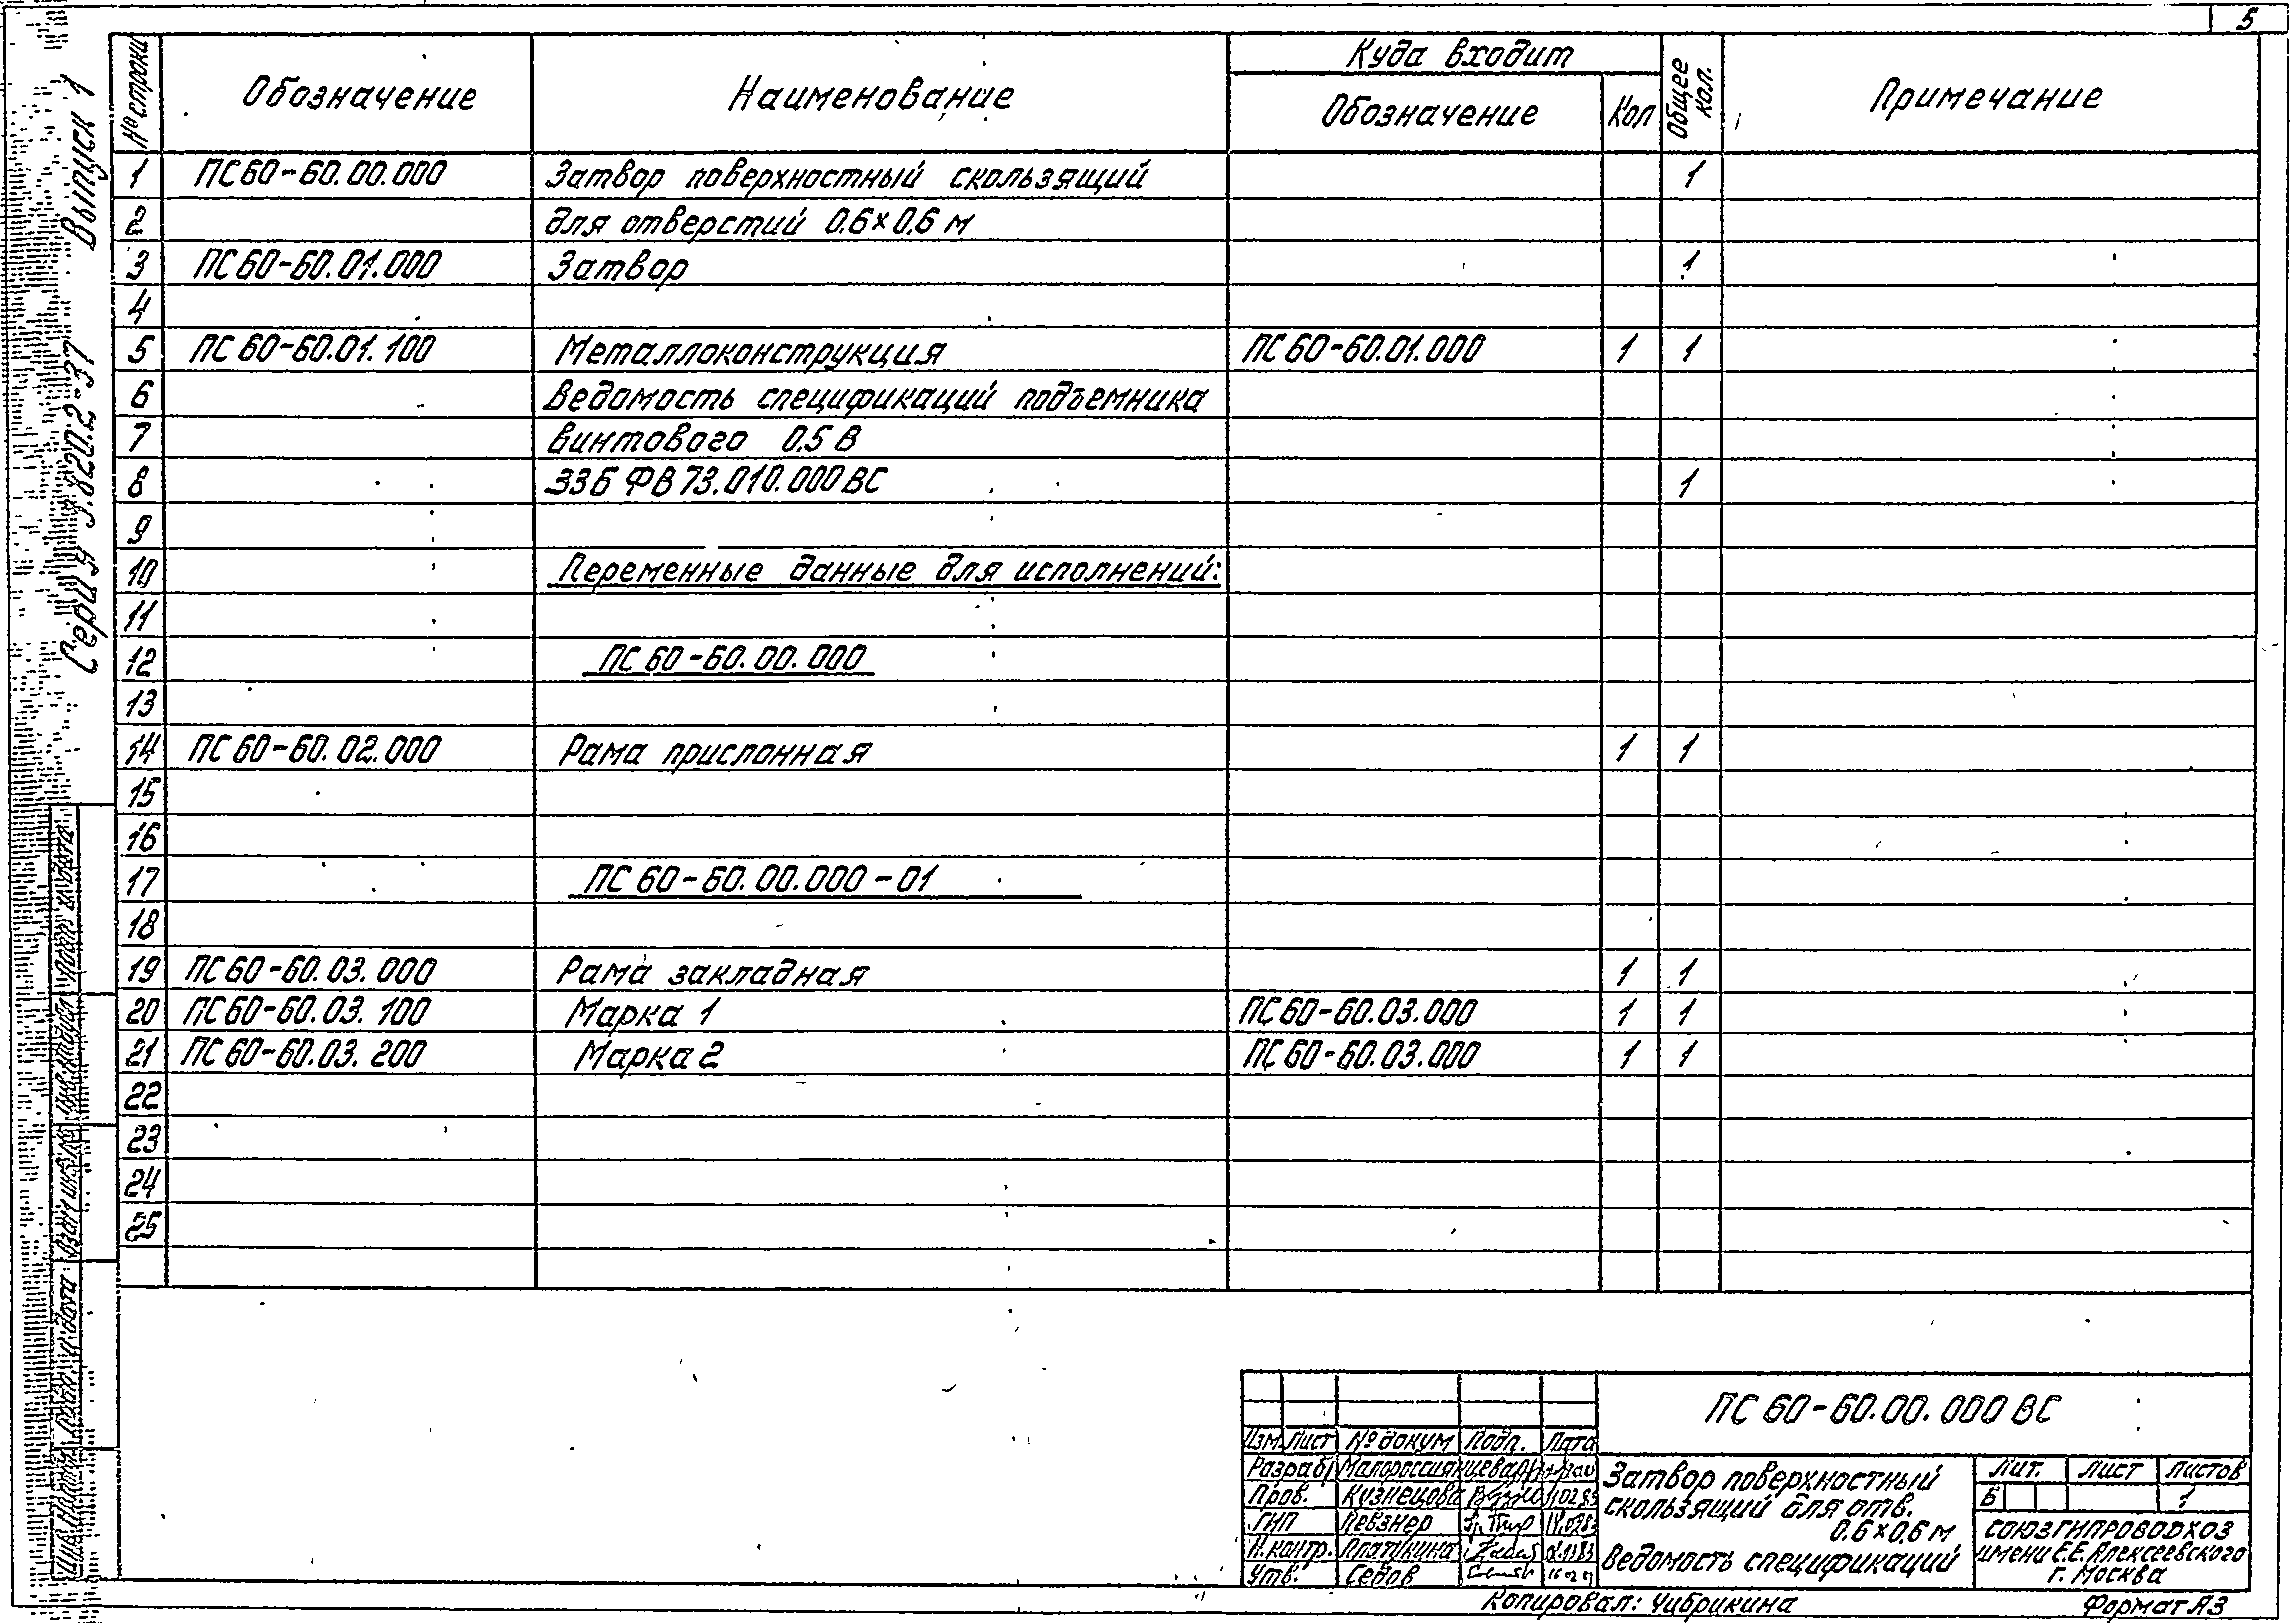 5
Серия 3.820.2-37 Выпуск 1
№ строки Обозначение Наименование Куда входит Общее кол. Примечание
Обозначение Кол
1 ПС60-60.00.000 Затвор поверхностный скользящий 1
2 для отверстий 0.6×0.6 м
3 ПС60-60.01.000 Затвор 1
4
5 ПС60-60.01.100 Металлоконструкция ПС60-60.01.000 1 1
6 Ведомость спецификаций подъемника
7 винтового 0.5 В
8 33Б ФВ 73.010.000 ВС 1
9
10 Переменные данные для исполнений:
11
12 ПС 60-60.00.000
13
14 ПС 60-60.02.000 Рама прислонная 1 1
15
16
17 ПС 60-60.00.000-01
18
19 ПС60-60.03.000 Рама закладная 1 1
20 ПС60-60.03.100 Марка 1 ПС60-60.03.000 1 1
21 ПС60-60.03.200 Марка 2 ПС60-60.03.000 1 1
22
23
24
25
ПС 60-60.00.000 ВС
Изм. Лист № докум Подп. Дата
Разраб. Малороссиянцева
Пров. Кузнецова
ГИП Певзнер
Н.контр. Платунина
Утв. Седов
Затвор поверхностный
скользящий для отв.
0.6×0.6 м
Ведомость спецификаций
Лит. Лист Листов
Б 1
СОЮЗГИПРОВОДХОЗ
имени Е.Е. Алексеевского
г. Москва
Копировал: Чибрикина Формат А3